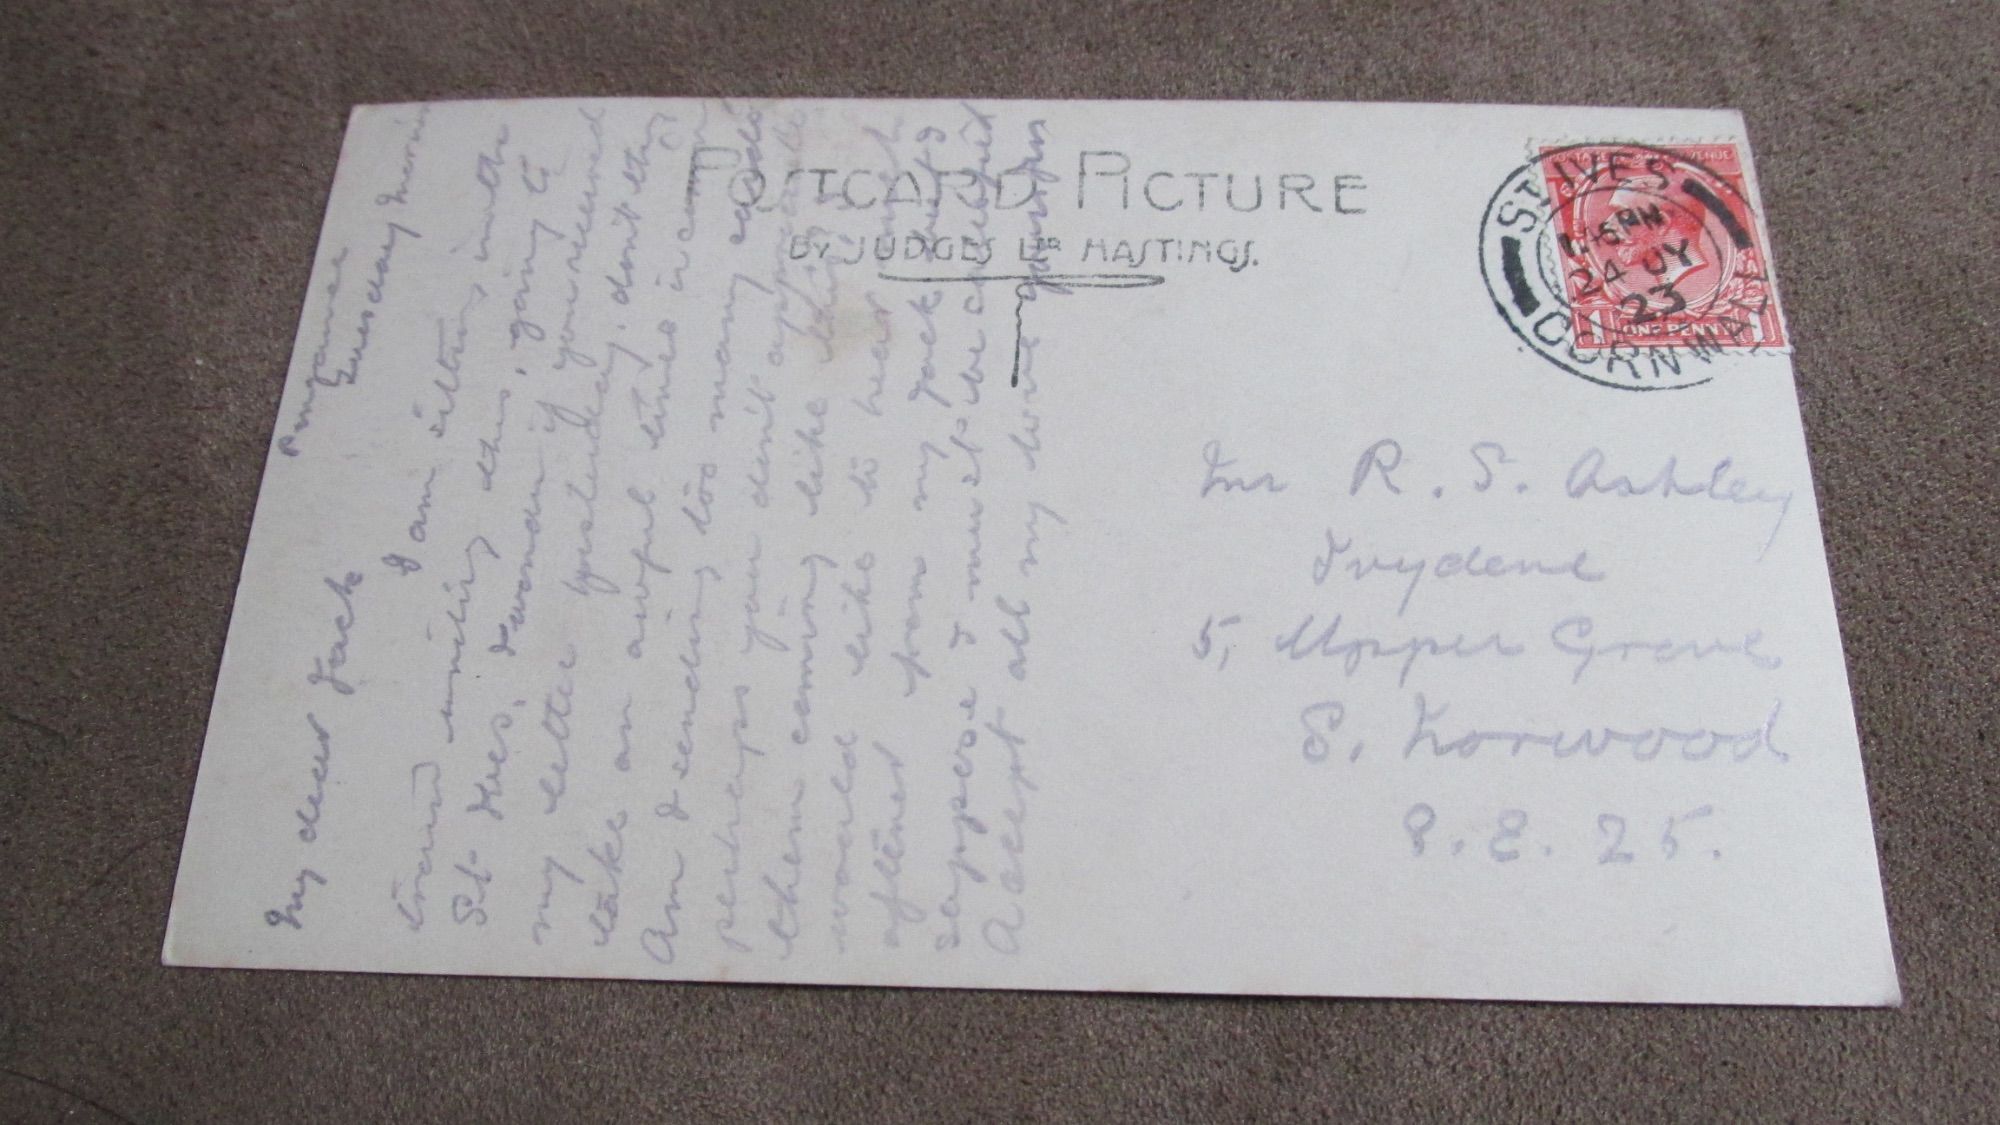 POSTCARD PICTURE
BY JUDGES LTD HASTINGS.
POSTAGE REVENUE
1 ONE PENNY 1
ST. IVES
1.15 PM
24 JY
23
CORNWALL
Mr R. S. Ashley
Ivydene
5, Upper Grove
S. Norwood
S. E. 25.
Penzance
Tuesday Morning
My dear Jack
I am sitting in the
train writing this, going to
St. Ives, I wonder if you received
my letter yesterday, don't they
take an awful time in coming
Am I sending too many cards
perhaps you don't appreciate
them coming like this. I
would like to hear
oftener from my Jack but I
suppose I must be content
Accept all my love